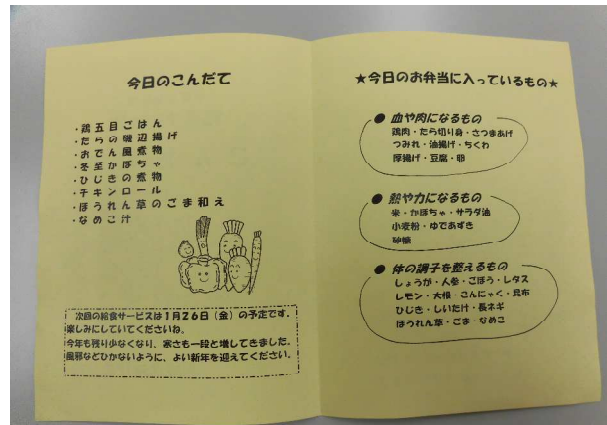 今日のこんだて
・鶏五目ごはん
・たらの磯辺揚げ
・おでん風煮物
・冬至かぼちゃ
・ひじきの煮物
・チキンロール
・ほうれん草のごま和え
・なめこ汁
次回の給食サービスは1月26日（金）の予定です。
楽しみにしていてくださいね。
今年も残り少なくなり、寒さも一段と増してきました。
風邪などひかないように、よい新年を迎えてください。
★今日のお弁当に入っているもの★
● 血や肉になるもの
鶏肉・たら切り身・さつまあげ
つみれ・油揚げ・ちくわ
厚揚げ・豆腐・卵
● 熱や力になるもの
米・かぼちゃ・サラダ油
小麦粉・ゆであずき
砂糖
● 体の調子を整えるもの
しょうが・人参・ごぼう・レタス
レモン・大根・こんにゃく・昆布
ひじき・しいたけ・長ネギ
ほうれん草・ごま・なめこ